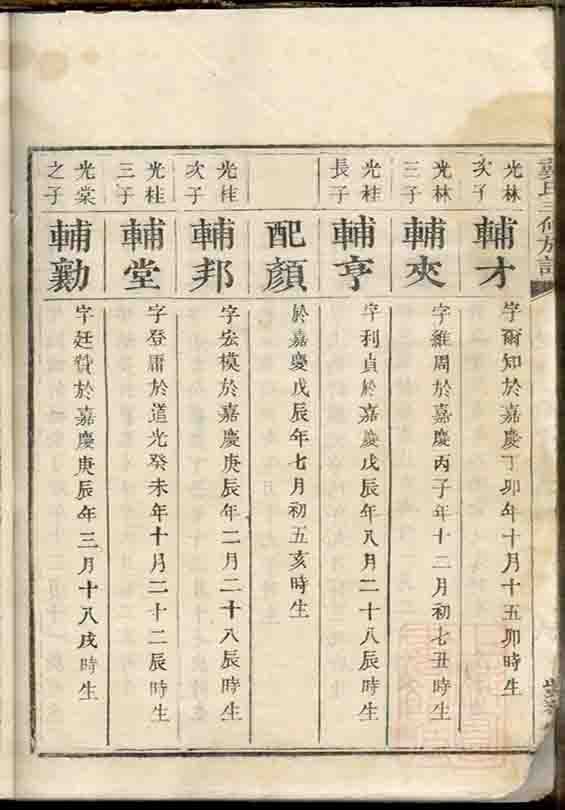 氏三修族譜
光林次子
輔才
字爾知於嘉慶丁卯年十月十五卯時生
光林三子
輔夾
字維周於嘉慶丙子年十二月初七丑時生
光桂長子
輔亨
字利貞於嘉慶戊辰年八月二十八辰時生
配顏
於嘉慶戊辰年七月初五亥時生
光桂次子
輔邦
字宏模於嘉慶庚辰年二月二十八辰時生
光桂三子
輔堂
字登庸於道光癸未年十月二十二辰時生
光棠之子
輔勷
字廷贊於嘉慶庚辰年三月十八戌時生